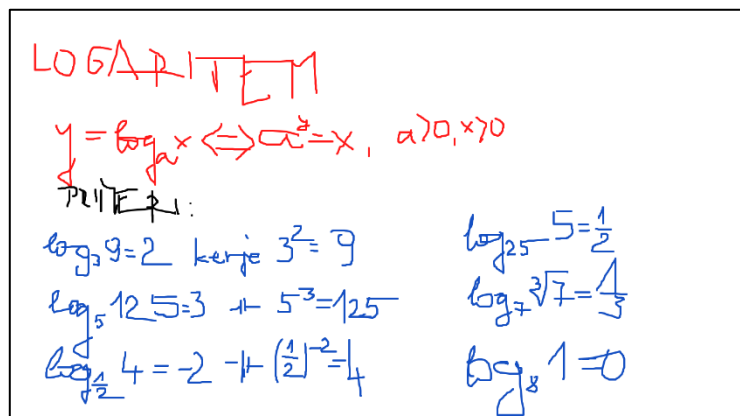 LOGARITEM
y = logₐx ⇔ aʸ = x, a>0, x>0
PRIMERI:
log₃9=2 ker je 3²=9
log₅125=3 -||- 5³=125
log_{1/2} 4 = -2 -||- (1/2)⁻²=4
log₂₅ 5 = 1/2
log₇ ∛7 = 1/3
log₈ 1=0